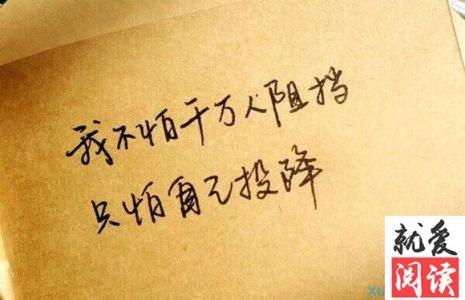 我不怕千万人阻挡
只怕自己投降
就爱
阅读